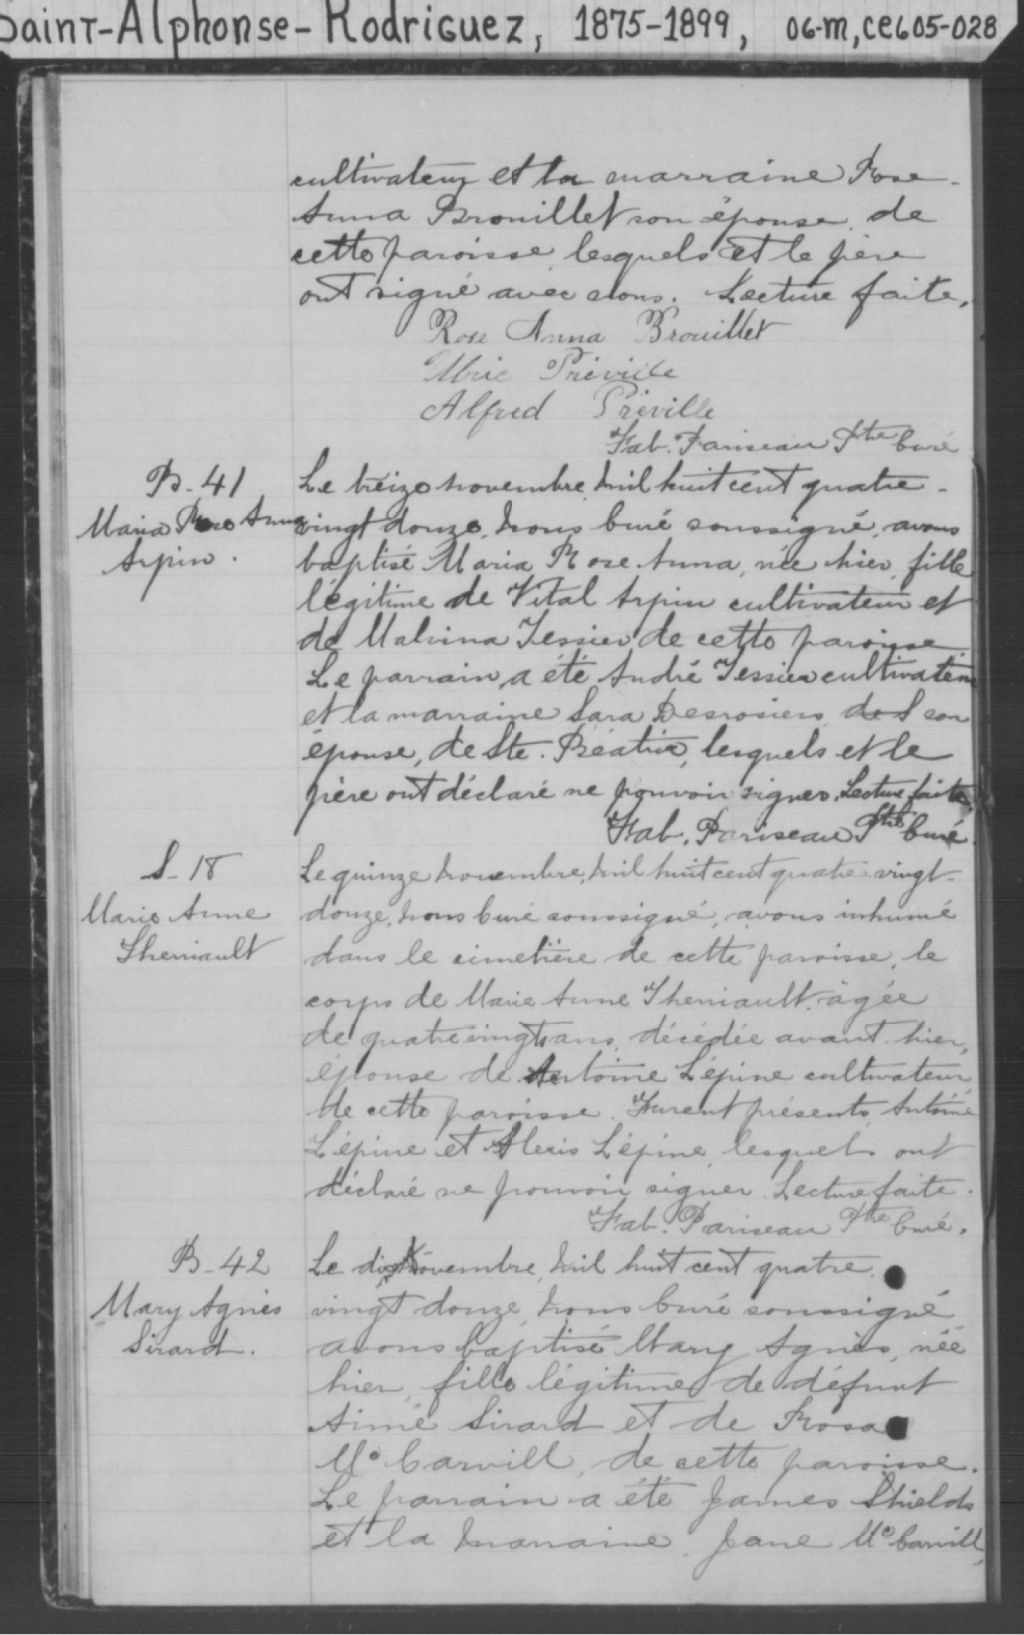 Saint-Alphonse-Rodriguez, 1875-1899, 06-M, CE605-028
cultivateur et la marraine Rose-
Anna Brouillet son épouse de
cette paroisse, lesquels et le père
ont signé avec nous. Lecture faite.
Rose Anna Brouillet
Préville
Alfred Préville
Fab. Pariseau Ptre Curé
B-41
Maria Rose Anna
Arpin.
Le treize novembre, mil huit cent quatre-
vingt douze, nous Curé soussigné, avons
baptisé Maria Rose Anna, née hier, fille
légitime de Vital Arpin cultivateur et
de Malvina Tessier de cette paroisse
Le parrain a été André Tessier cultivateur
et la marraine Sara Desrosiers de S son
épouse, de Ste. Béatrix, lesquels et le
père ont déclaré ne pouvoir signer. Lecture faite.
Fab. Pariseau Ptre Curé
S-18
Marie Anne
Therriault
Le quinze novembre, mil huit cent quatre-vingt-
douze, nous Curé soussigné, avons inhumé
dans le cimetière de cette paroisse, le
corps de Marie Anne Therriault âgée
de quatre vingts ans, décédée avant-hier,
épouse de Antoine Lépine cultivateur
de cette paroisse. Furent présents Antoine
Lépine et Alexis Lépine, lesquels ont
déclaré ne pouvoir signer. Lecture faite.
Fab. Pariseau Ptre Curé.
B-42
Mary Agnès
Sirard.
Le novembre, mil huit cent quatre
vingt douze, nous Curé soussigné
avons baptisé Mary Agnès, née
hier, fille légitime de défunt
Aimé Sirard et de Rosa
Mc Carvill, de cette paroisse.
Le parrain a été James Shields
et la marraine Jane Mc Carvill,